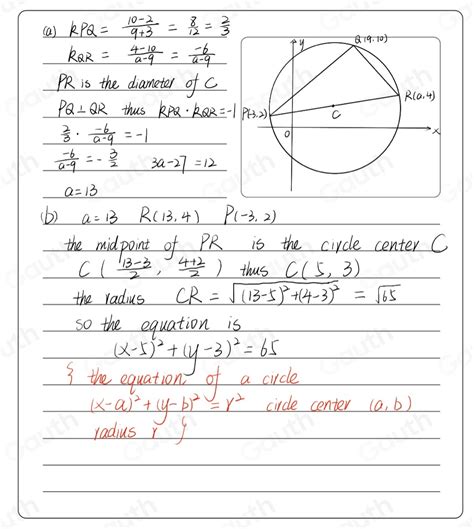 (a) kPQ = 10-2/9+3 = 8/12 = 2/3
kQR = 4-10/a-9 = -6/a-9
PR is the diameter of C
PQ⊥QR thus kPQ · kQR = -1
2/3 · -6/a-9 = -1
-6/a-9 = -3/2 3a-27 = 12
a = 13
y
Q(9,10)
R(a,4)
P(-3,2)
C
O
x
(b) a = 13 R(13,4) P(-3,2)
the midpoint of PR is the circle center C
C (13-3/2, 4+2/2) thus C(5,3)
the radius CR = √(13-5)²+(4-3)² = √65
so the equation is
(x-5)²+(y-3)² = 65
{ the equation of a circle
(x-a)²+(y-b)² = r² circle center (a,b)
radius r }
Gauth